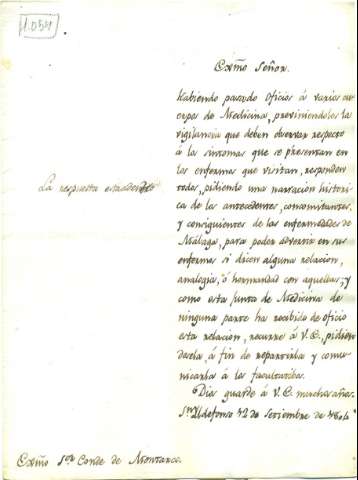 1.054
Exmo Señor.
Habiendo pasado Oficios á varios cu-
erpos de Medicina, previniendoles la
vigilancia que deben observar respecto
á los sintomas que se presentan en
los enfermos que visitan, responden
todos, pidiendo una narracion histori-
ca de los antecedentes, concomitantes,
y consiguientes de las enfermedades de
Málaga, para poder advertir en sus
enfermos si dicen alguna relacion,
analogia, ó hermandad con aquellas; y
como esta Junta de Medicina de
ninguna parte ha recibido de oficio
esta relacion, recurre á V.E. pidien
dosela á fin de repartirla y comu-
nicarla á los facultativos.
Dios guarde á V.E. muchos años.
Sn Ildefonso 12 de Setiembre de
La respuesta
Exmo Sor Conde de Montarco.